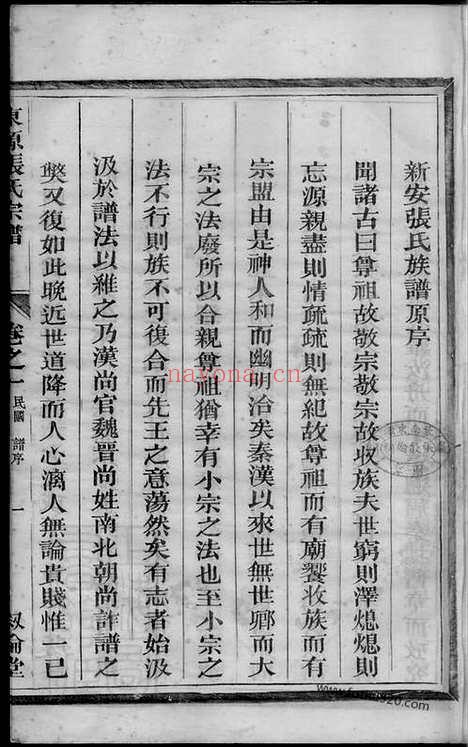 新安張氏族譜原序
聞諸古曰尊祖故敬宗敬宗故收族夫世窮則澤熄熄則
忘源親盡則情疏疏則無紀故尊祖而有廟饗收族而有
宗盟由是神人和而幽明治矣秦漢以來世無世卿而大
宗之法廢所以合親尊祖猶幸有小宗之法也至小宗之
法不行則族不可復合而先王之意蕩然矣有志者始汲
汲於譜法以維之乃漢尚官魏晉尚姓南北朝尚詐譜之
獘又復如此晚近世道降而人心漓人無論貴賤惟一己
東原張氏宗譜
卷之一
民國
譜序
一
叙倫堂
nayona.cn